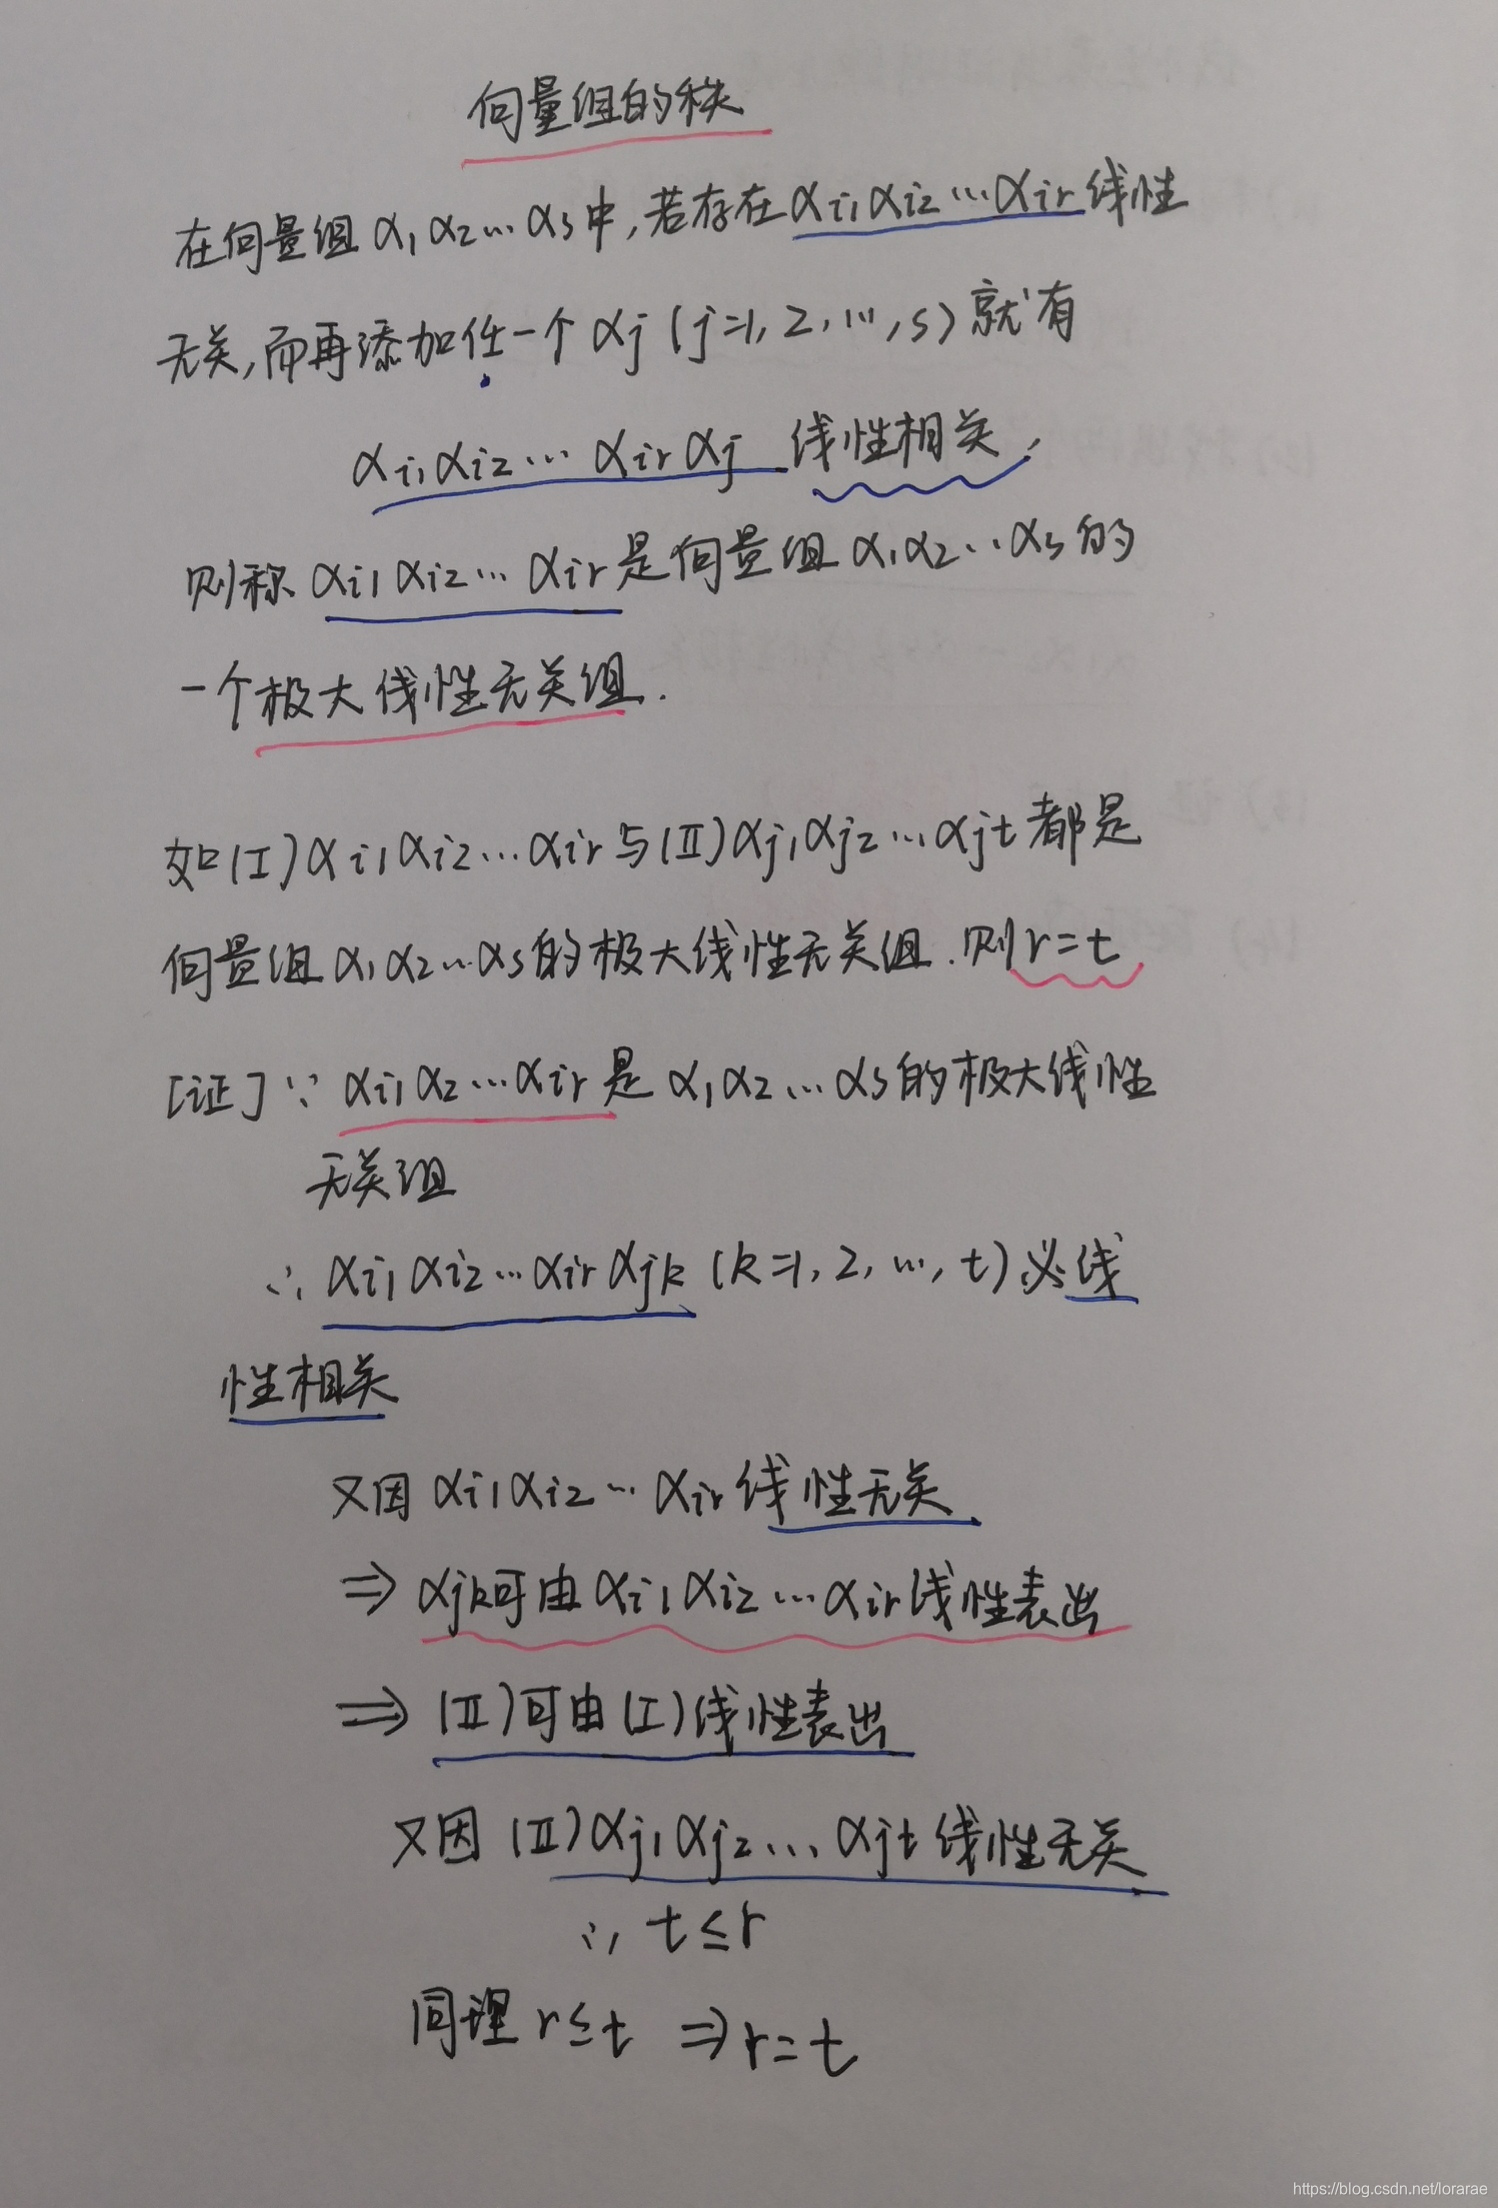 向量组的秩
在向量组 α₁α₂…αs中,若存在αi₁αi₂…αir线性
无关,而再添加任一个 αj (j=1, 2, …, s) 就有
αi₁αi₂… αirαj 线性相关,
则称 αi₁αi₂… αir是向量组 α₁α₂…αs的
一个极大线性无关组.
如(Ⅰ)αi₁αi₂…αir与(Ⅱ)αj₁αj₂…αjt都是
向量组α₁α₂…αs的极大线性无关组.则r=t
[证]∵ αi₁α₂…αir是 α₁α₂…αs的极大线性
无关组
∴ αi₁αi₂…αirαjk (k=1, 2, …, t)必线
性相关
又因 αi₁αi₂…αir线性无关
⇒ αjk可由αi₁αi₂…αir线性表出
⇒ (Ⅱ)可由(Ⅰ)线性表出
又因 (Ⅱ)αj₁αj₂…αjt 线性无关
∴ t≤r
同理 r≤t ⇒r=t
https://blog.csdn.net/lorarae